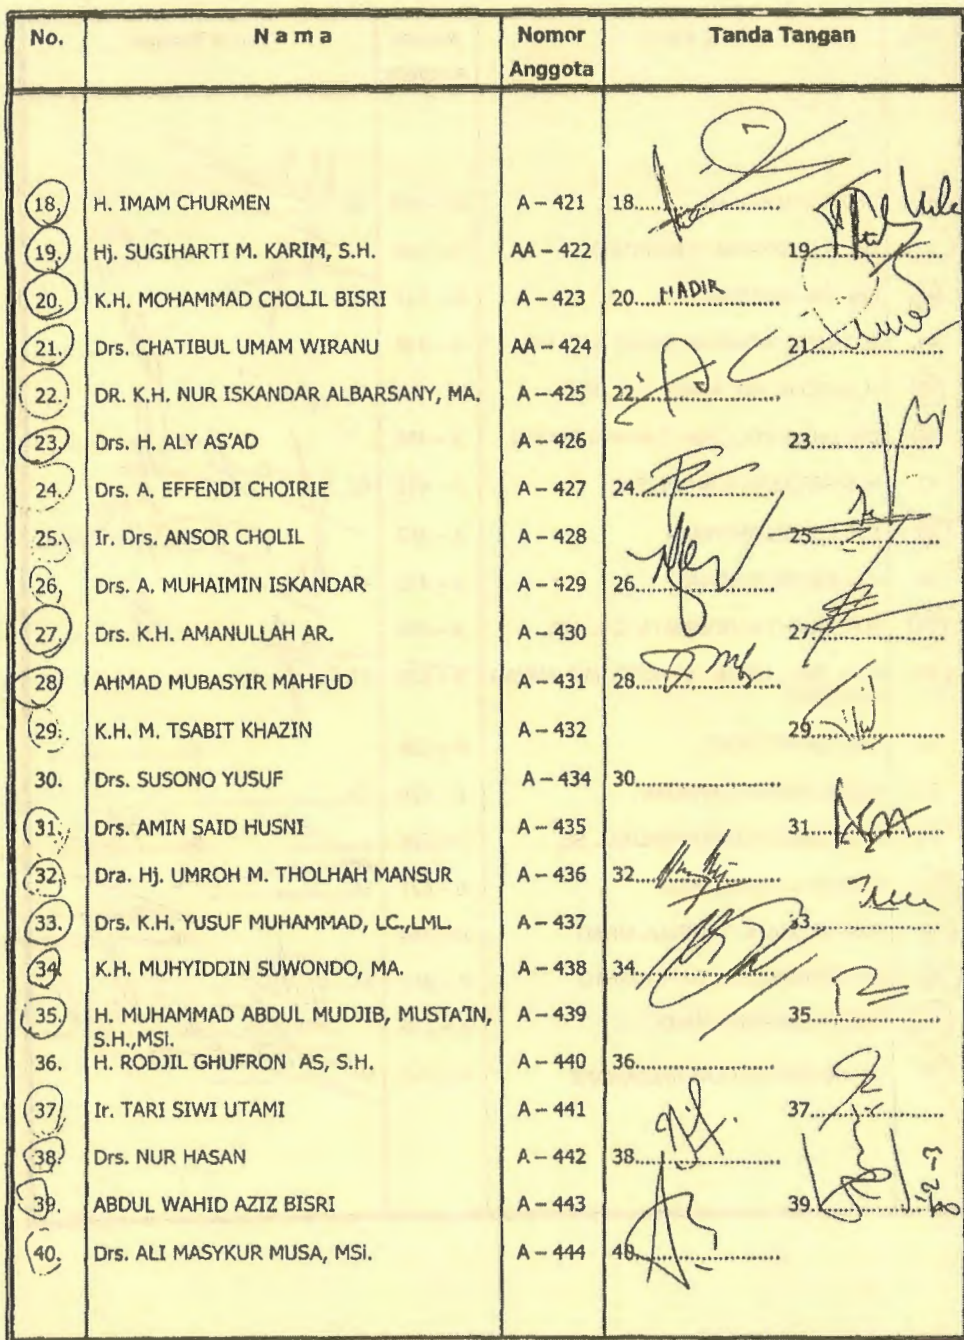 No. N a m a Nomor Anggota Tanda Tangan
18. H. IMAM CHURMEN A – 421 18....................
19. Hj. SUGIHARTI M. KARIM, S.H. AA – 422 19....................
20. K.H. MOHAMMAD CHOLIL BISRI A – 423 20. HADIR
21. Drs. CHATIBUL UMAM WIRANU AA – 424 21....................
22. DR. K.H. NUR ISKANDAR ALBARSANY, MA. A – 425 22....................
23. Drs. H. ALY AS'AD A – 426 23....................
24. Drs. A. EFFENDI CHOIRIE A – 427 24....................
25. Ir. Drs. ANSOR CHOLIL A – 428 25....................
26. Drs. A. MUHAIMIN ISKANDAR A – 429 26....................
27. Drs. K.H. AMANULLAH AR. A – 430 27....................
28. AHMAD MUBASYIR MAHFUD A – 431 28....................
29. K.H. M. TSABIT KHAZIN A – 432 29....................
30. Drs. SUSONO YUSUF A – 434 30....................
31. Drs. AMIN SAID HUSNI A – 435 31....................
32. Dra. Hj. UMROH M. THOLHAH MANSUR A – 436 32....................
33. Drs. K.H. YUSUF MUHAMMAD, LC.,LML. A – 437 33....................
34. K.H. MUHYIDDIN SUWONDO, MA. A – 438 34....................
35. H. MUHAMMAD ABDUL MUDJIB, MUSTA'IN, A – 439 35....................
S.H.,MSi.
36. H. RODJIL GHUFRON AS, S.H. A – 440 36....................
37. Ir. TARI SIWI UTAMI A – 441 37....................
38. Drs. NUR HASAN A – 442 38....................
39. ABDUL WAHID AZIZ BISRI A – 443 39....................
40. Drs. ALI MASYKUR MUSA, MSi. A – 444 40....................